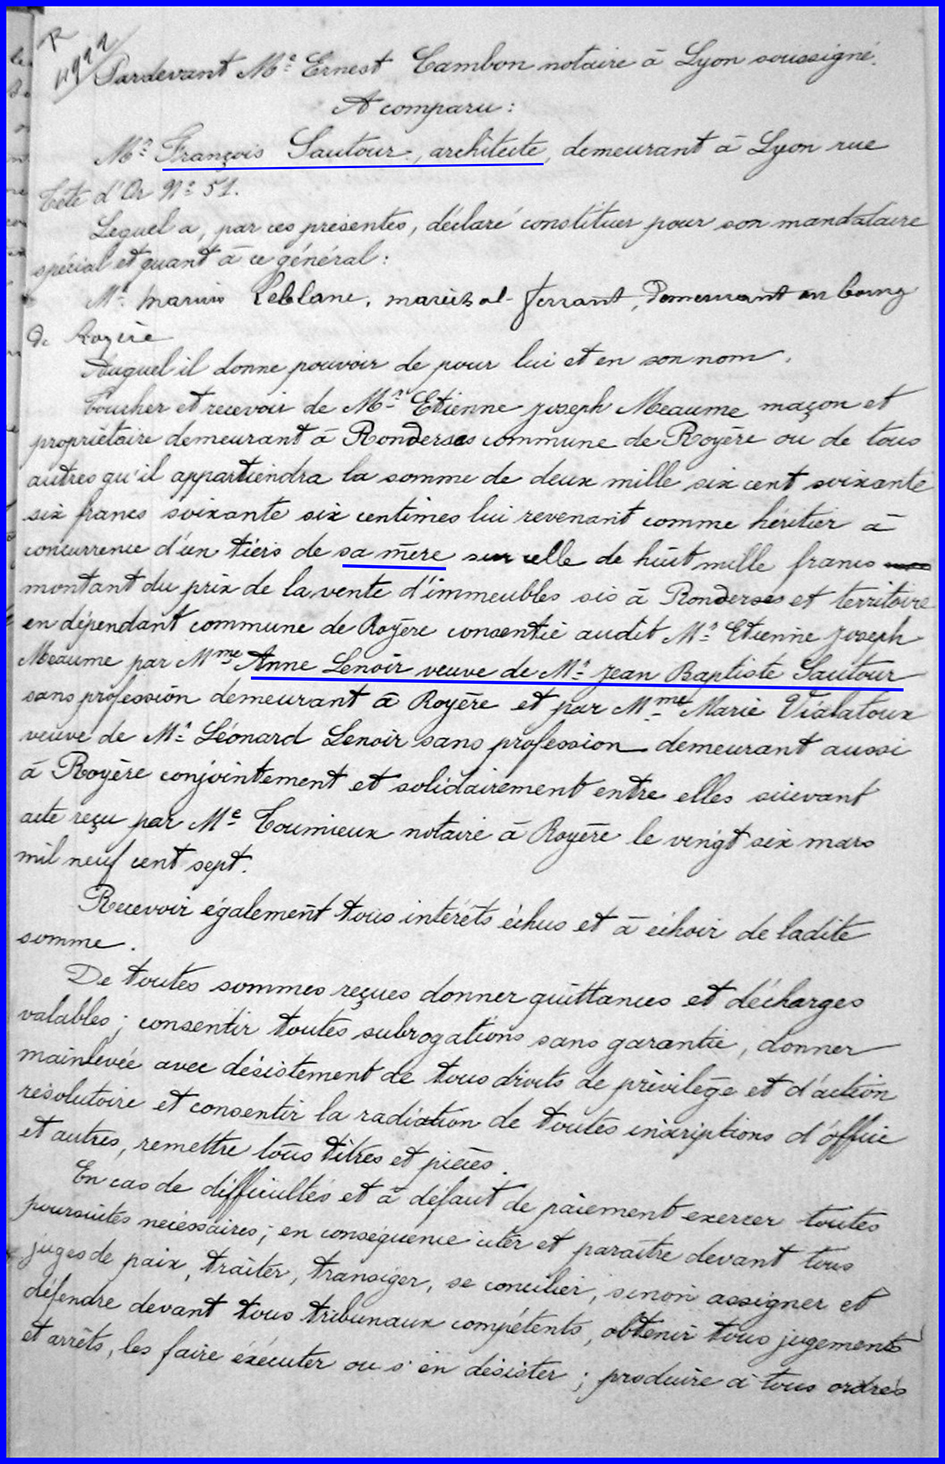 R
4922
Pardevant Me Ernest Cambon notaire à Lyon soussigné.
A comparu :
Mr François Sautour, architecte, demeurant à Lyon rue
Tête d'Or No 51.
Lequel a, par ces présentes, déclaré constituer pour son mandataire
spécial et quant à ce général :
Mr marius Leblanc, maréchal-ferrant, Demeurant au bourg
de Royère
Auquel il donne pouvoir de pour lui et en son nom.
Toucher et recevoir de Mr Etienne Joseph Meaume maçon et
propriétaire demeurant à Ronderses commune de Royère ou de tous
autres qu'il appartiendra la somme de deux mille six cent soixante
six francs soixante six centimes lui revenant comme héritier à
concurrence d'un tiers de sa mère sur celle de huit mille francs
montant du prix de la vente d'immeubles sis à Ronderses et territoire
en dépendant commune de Royère consentie audit Mr Etienne Joseph
Meaume par Mme Anne Lenoir veuve de Mr Jean Baptiste Sautour
sans profession demeurant à Royère et par Mme Marie Vialatoux
veuve de Mr Léonard Lenoir sans profession demeurant aussi
à Royère conjointement et solidairement entre elles suivant
acte reçu par Me Toumieux notaire à Royère le vingt six mars
mil neuf cent sept.
Recevoir également tous intérêts échus et à échoir de ladite
somme.
De toutes sommes reçues donner quittances et décharges
valables ; consentir toutes subrogations sans garantie, donner
mainlevée avec désistement de tous droits de privilège et d'action
résolutoire et consentir la radiation de toutes inscriptions d'office
et autres, remettre tous titres et pièces.
En cas de difficultés et à défaut de paiement exercer toutes
poursuites nécessaires ; en conséquence citer et paraître devant tous
juges de paix, traiter, transiger, se concilier, sinon assigner et
défendre devant tous tribunaux compétents, obtenir tous jugements
et arrêts, les faire exécuter ou s'en désister ; produire à tous ordres